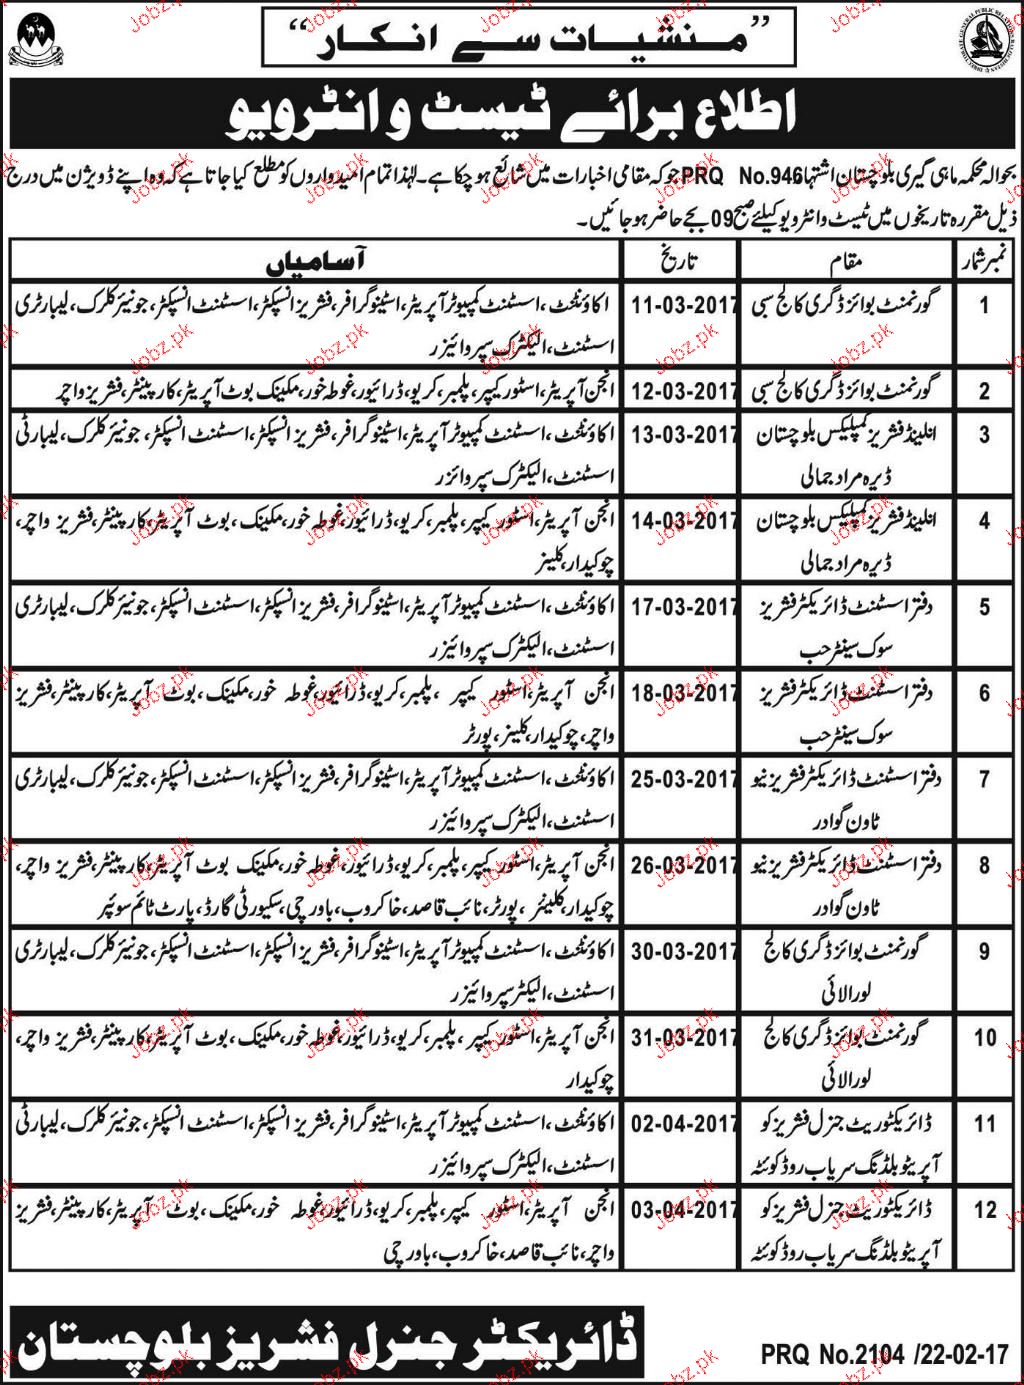 ”منشیات سے انکار“
اطلاع برائے ٹیسٹ و انٹرویو
بحوالہ محکمہ ماہی گیری بلوچستان اشتہار PRQ No.946 جو کہ مقامی اخبارات میں شائع ہو چکا ہے۔ لہٰذا تمام امیدواروں کو مطلع کیا جاتا ہے کہ وہ اپنے ڈویژن میں درج
ذیل مقررہ تاریخوں میں ٹیسٹ و انٹرویو کیلئے صبح 09 بجے حاضر ہو جائیں۔
نمبر شمار مقام تاریخ آسامیاں
1 گورنمنٹ بوائز ڈگری کالج سبی 11-03-2017 اکاؤنٹنٹ، اسسٹنٹ کمپیوٹر آپریٹر، اسٹینوگرافر، فشریز انسپکٹر، اسسٹنٹ انسپکٹر، جونیئر کلرک، لیبارٹری
اسسٹنٹ، الیکٹرک سپروائیزر
2 گورنمنٹ بوائز ڈگری کالج سبی 12-03-2017 انجن آپریٹر، اسٹور کیپر، پلمبر، کریو، ڈرائیور، غوطہ خور، مکینک بوٹ آپریٹر، کارپینٹر، فشریز واچر
3 انلینڈ فشریز کمپلیکس بلوچستان 13-03-2017 اکاؤنٹنٹ، اسسٹنٹ کمپیوٹر آپریٹر، اسٹینوگرافر، فشریز انسپکٹر، اسسٹنٹ انسپکٹر، جونیئر کلرک، لیبارٹی
ڈیرہ مراد جمالی اسسٹنٹ، الیکٹرک سپروائزر
4 انلینڈ فشریز کمپلیکس بلوچستان 14-03-2017 انجن آپریٹر، اسٹور کیپر، پلمبر، کریو، ڈرائیور، غوطہ خور، مکینک، بوٹ آپریٹر، کارپینٹر، فشریز واچر،
ڈیرہ مراد جمالی چوکیدار، کلینر
5 دفتر اسسٹنٹ ڈائریکٹر فشریز 17-03-2017 اکاؤنٹنٹ، اسسٹنٹ کمپیوٹر آپریٹر، اسٹینوگرافر، فشریز انسپکٹر، اسسٹنٹ انسپکٹر، جونیئر کلرک، لیبارٹری
سوک سینٹر حب اسسٹنٹ، الیکٹرک سپروائیزر
6 دفتر اسسٹنٹ ڈائریکٹر فشریز 18-03-2017 انجن آپریٹر، اسٹور کیپر، پلمبر، کریو، ڈرائیور، غوطہ خور، مکینک، بوٹ آپریٹر، کارپینٹر، فشریز
سوک سینٹر حب واچر، چوکیدار، کلینر، پورٹر
7 دفتر اسسٹنٹ ڈائریکٹر فشریز نیو 25-03-2017 اکاؤنٹنٹ، اسسٹنٹ کمپیوٹر آپریٹر، اسٹینوگرافر، فشریز انسپکٹر، اسسٹنٹ انسپکٹر، جونیئر کلرک، لیبارٹری
ٹاون گوادر اسسٹنٹ، الیکٹرک سپروائیزر
8 دفتر اسسٹنٹ ڈائریکٹر فشریز نیو 26-03-2017 انجن آپریٹر، اسٹور کیپر، پلمبر، کریو، ڈرائیور، غوطہ خور، مکینک بوٹ آپریٹر، کارپینٹر، فشریز واچر،
ٹاون گوادر چوکیدار، کلینئر، پورٹر، نائب قاصد، خاکروب، باورچی، سکیورٹی گارڈ، پارٹ ٹائم سوئپر
9 گورنمنٹ بوائز ڈگری کالج 30-03-2017 اکاؤنٹنٹ، اسسٹنٹ کمپیوٹر آپریٹر، اسٹینوگرافر، فشریز انسپکٹر، اسسٹنٹ انسپکٹر، جونیئر کلرک، لیبارٹری
لورالائی اسسٹنٹ، الیکٹر سپروائیزر
10 گورنمنٹ بوائز ڈگری کالج 31-03-2017 انجن آپریٹر، اسٹور کیپر، پلمبر، کریو، ڈرائیور، غوطہ خور، مکینک، بوٹ آپریٹر، کارپینٹر، فشریز واچر،
لورالائی چوکیدار
11 ڈائریکٹوریٹ جنرل فشریز کو 02-04-2017 اکاؤنٹنٹ، اسسٹنٹ کمپیوٹر آپریٹر، اسٹینوگرافر، فشریز انسپکٹر، اسسٹنٹ انسپکٹر، جونیئر کلرک، لیبارٹی
آپریٹو بلڈنگ سریاب روڈ کوئٹہ اسسٹنٹ، الیکٹرک سپروائیزر
12 ڈائریکٹوریٹ جنرل فشریز کو 03-04-2017 انجن آپریٹر، اسٹور کیپر، پلمبر، کریو، ڈرائیور، غوطہ خور، مکینک، بوٹ آپریٹر، کارپینٹر، فشریز
آپریٹو بلڈنگ سریاب روڈ کوئٹہ واچر، نائب قاصد، خاکروب، باورچی
ڈائریکٹر جنرل فشریز بلوچستان
PRQ No.2104 /22-02-17
Jobz.pk